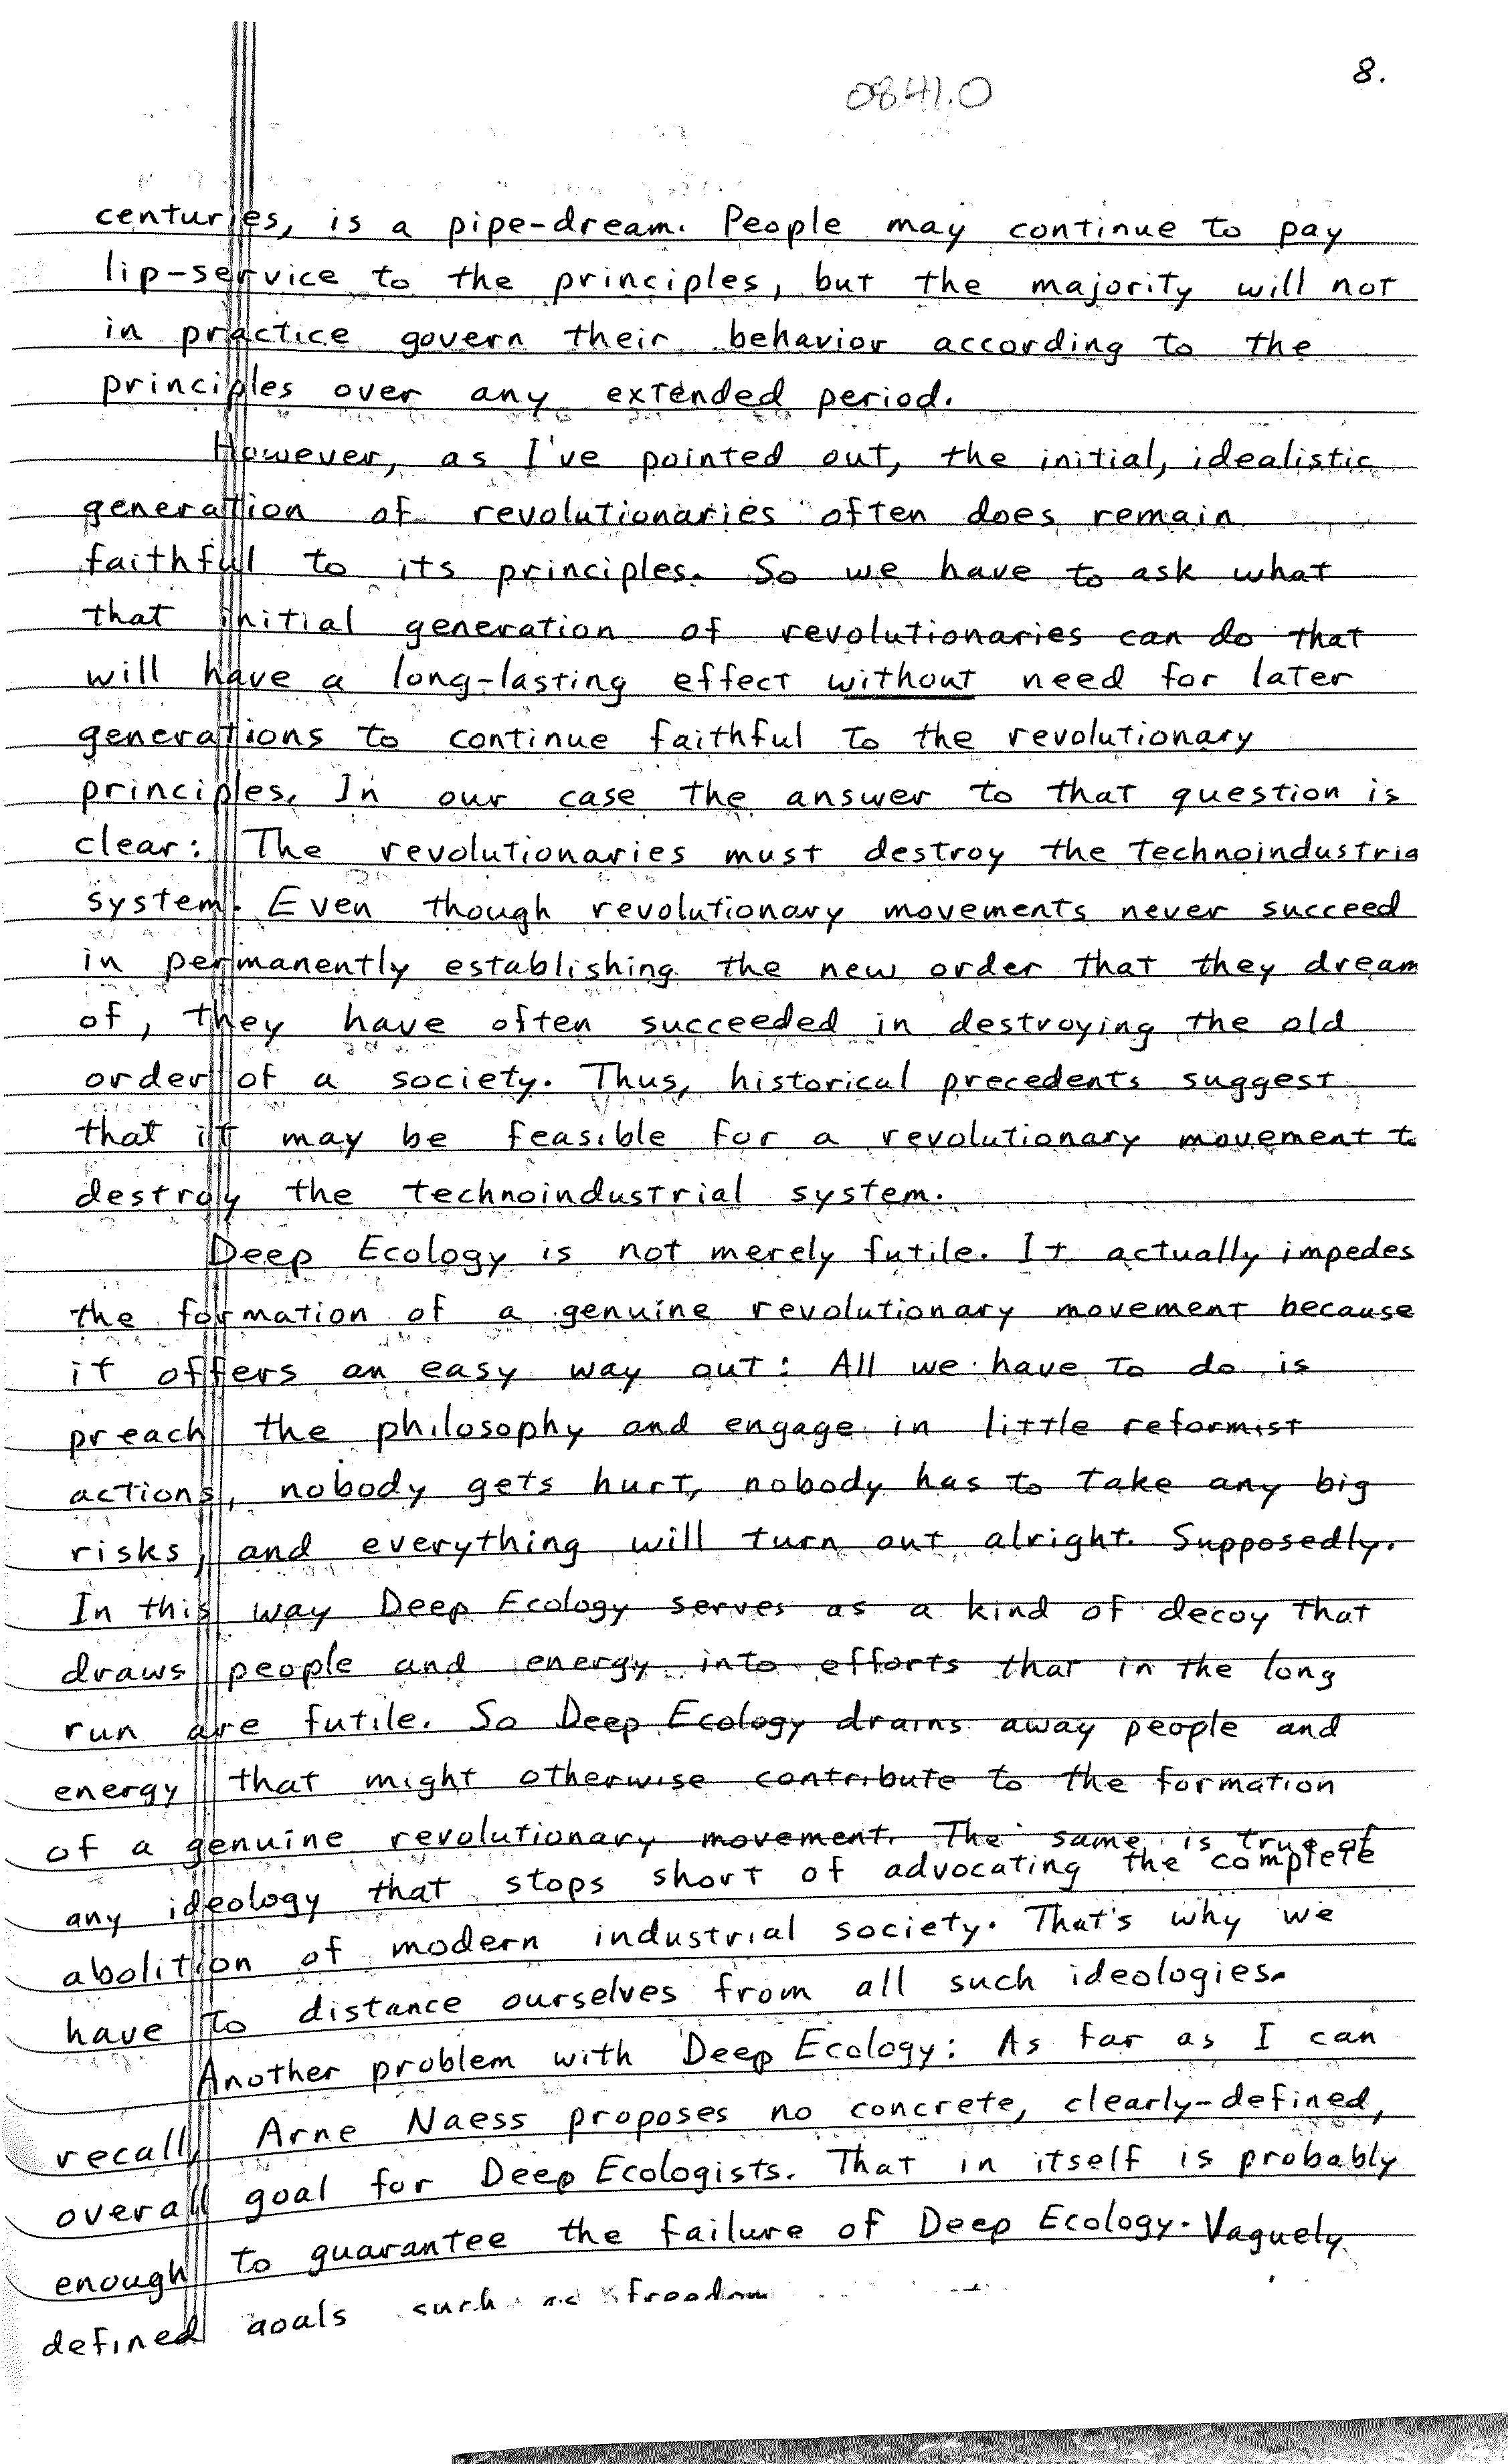 8.
0841.0
centuries, is a pipe-dream. People may continue to pay
lip-service to the principles, but the majority will not
in practice govern their behavior according to the
principles over any extended period.
However, as I've pointed out, the initial, idealistic
generation of revolutionaries often does remain
faithful to its principles. So we have to ask what
that initial generation of revolutionaries can do that
will have a long-lasting effect without need for later
generations to continue faithful to the revolutionary
principles. In our case the answer to that question is
clear: The revolutionaries must destroy the technoindustria
system. Even though revolutionary movements never succeed
in permanently establishing the new order that they dream
of, they have often succeeded in destroying the old
order of a society. Thus, historical precedents suggest
that it may be feasible for a revolutionary movement to
destroy the technoindustrial system.
Deep Ecology is not merely futile. It actually impedes
the formation of a genuine revolutionary movement because
it offers an easy way out: All we have to do is
preach the philosophy and engage in little reformist
actions, nobody gets hurt, nobody has to take any big
risks, and everything will turn out alright. Supposedly.
In this way Deep Ecology serves as a kind of decoy that
draws people and energy into efforts that in the long
run are futile. So Deep Ecology drains away people and
energy that might otherwise contribute to the formation
of a genuine revolutionary movement. The same is true of
any ideology that stops short of advocating the complete
abolition of modern industrial society. That's why we
have to distance ourselves from all such ideologies.
Another problem with Deep Ecology: As far as I can
recall, Arne Naess proposes no concrete, clearly-defined,
overall goal for Deep Ecologists. That in itself is probably
enough to guarantee the failure of Deep Ecology. Vaguely
defined goals such as freedom